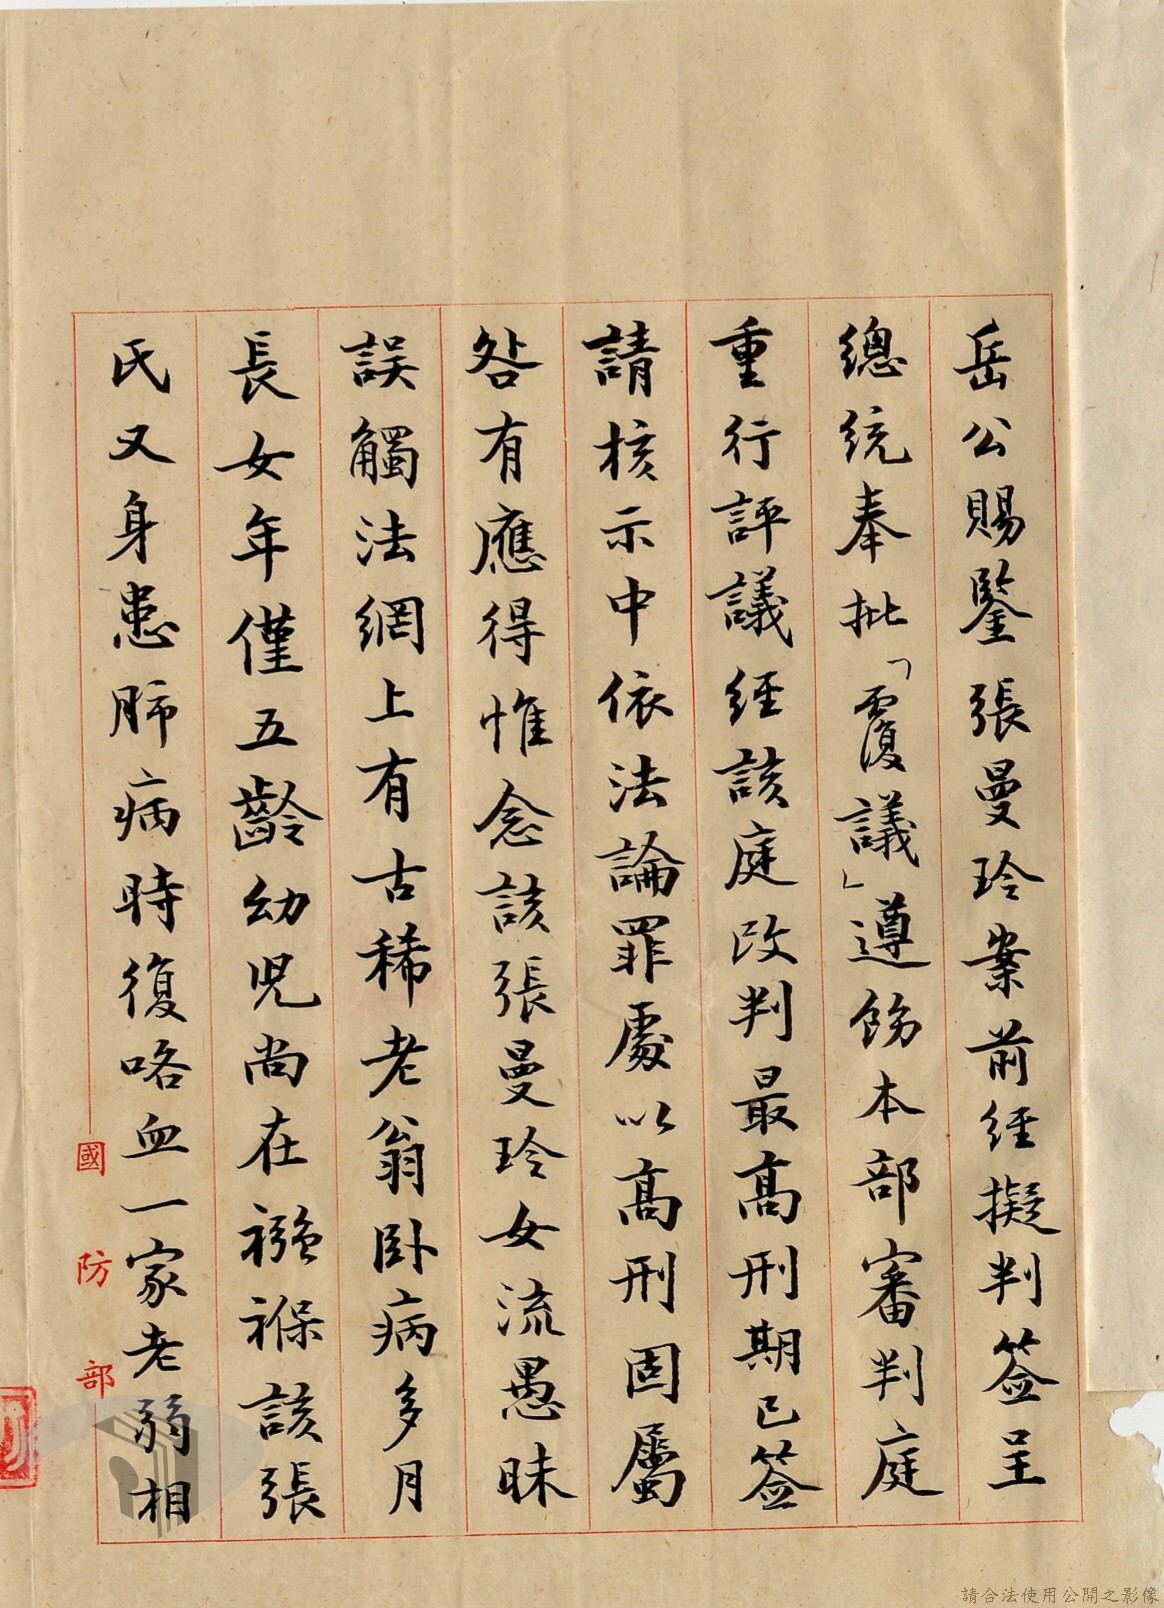 岳公賜鑒張曼玲案前經擬判簽呈
總統奉批「覆議」遵飭本部審判庭
重行評議經該庭改判最高刑期已簽
請核示中依法論罪處以高刑固屬
咎有應得惟念該張曼玲女流愚昧
誤觸法網上有古稀老翁卧病多月
長女年僅五齡幼兒尚在襁褓該張
氏又身患肺病時復咯血一家老弱相
國防部
請合法使用公開之影像